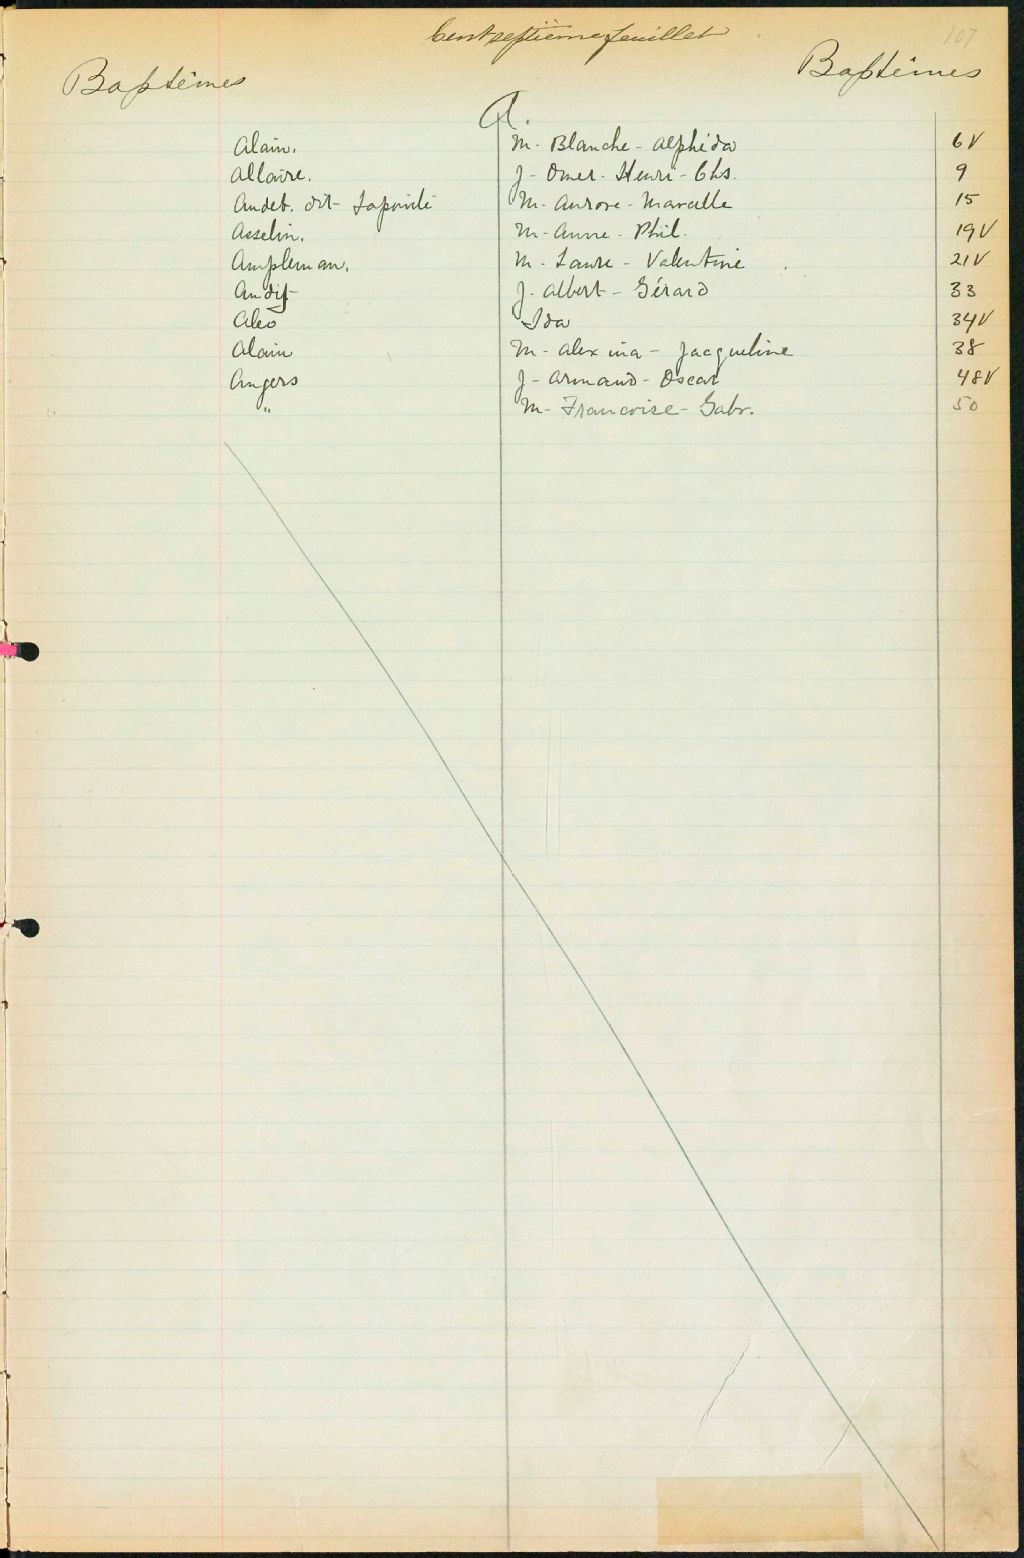 Cent septième feuillet
107
Baptêmes Baptêmes
A.
Alain. M- Blanche- Alphéda 6V
Allaire. J- Omer- Henri- Chs. 9
Audet. dit Lapointe M- Aurore- Marcelle 15
Asselin. M- Anne- Phil. 19V
Ampleman. M- Laure- Valentine 21V
J- Albert- Gérard 33
Aleo Ida 34V
Alain M- Alexina- Jacqueline 38
Angers J- Armand- Oscar 48V
" M- Francoise- Gabr. 50